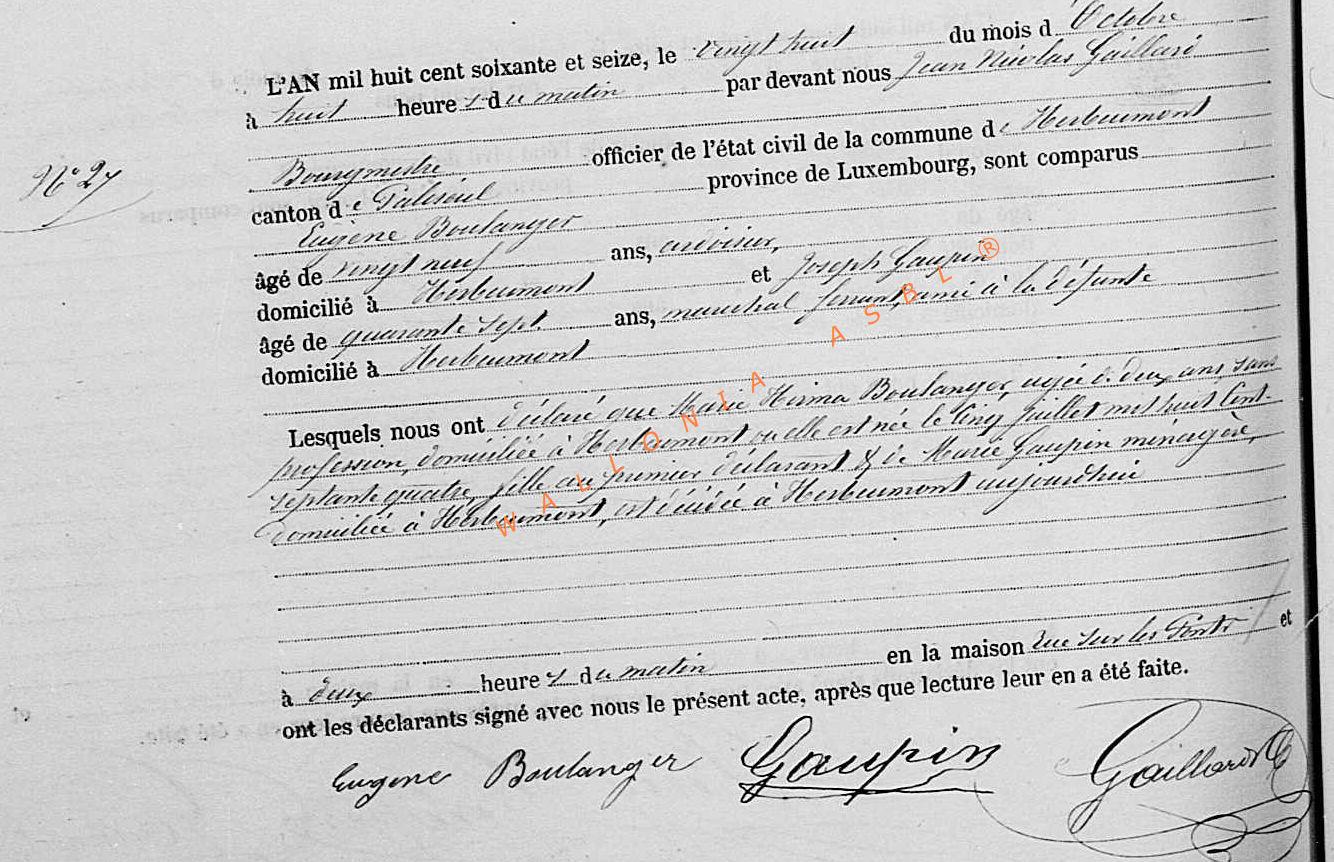 L'AN mil huit cent soixante et seize, le vingt huit du mois d Octobre
à huit heure s du matin par devant nous Jean Nicolas Gaillard
N° 27
Bourgmestre officier de l'état civil de la commune de Herbeumont
canton de Paliseul province de Luxembourg, sont comparus
Eugène Boulanger
âgé de vingt neuf ans, ardoisier,
domicilié à Herbeumont et Joseph Gaupin
âgé de quarante sept ans, maréchal ferrant, ami à la défunte
domicilié à Herbeumont
Lesquels nous ont déclaré que Marie Irma Boulanger, agée de deux ans, sans
profession, domiciliée à Herbeumont ou elle est née le cinq juillet mil huit cent
septante quatre, fille du premier déclarant & de Marie Gaupin ménagère,
domiciliée à Herbeumont, est décédée à Herbeumont aujourd'hui
à deux heure s du matin en la maison rue sur les Ponts et
ont les déclarants signé avec nous le présent acte, après que lecture leur en a été faite.
Eugene Boulanger Gaupin Gaillard
WALLONIA ASBL ®